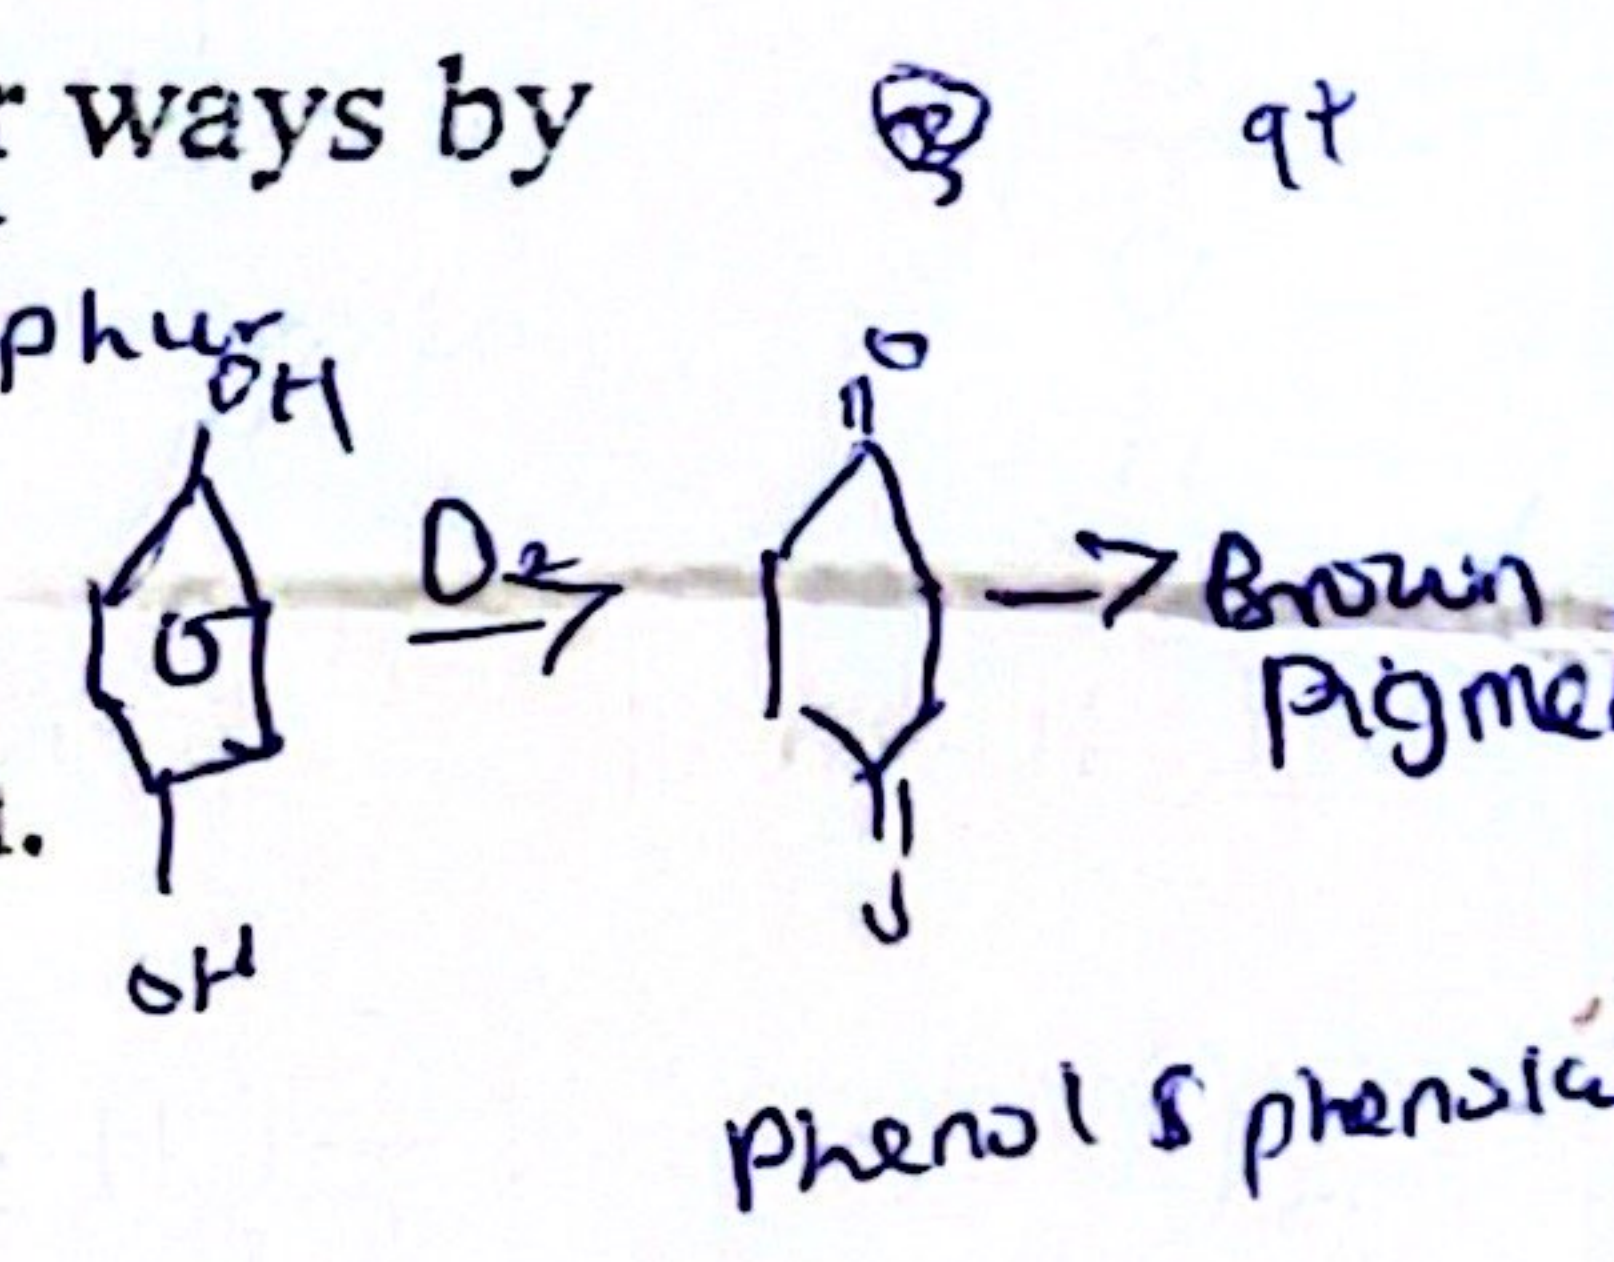 ways by
qt
phur
OH
O
O2
Brown
Pigme
OH
Phenol & phenolic